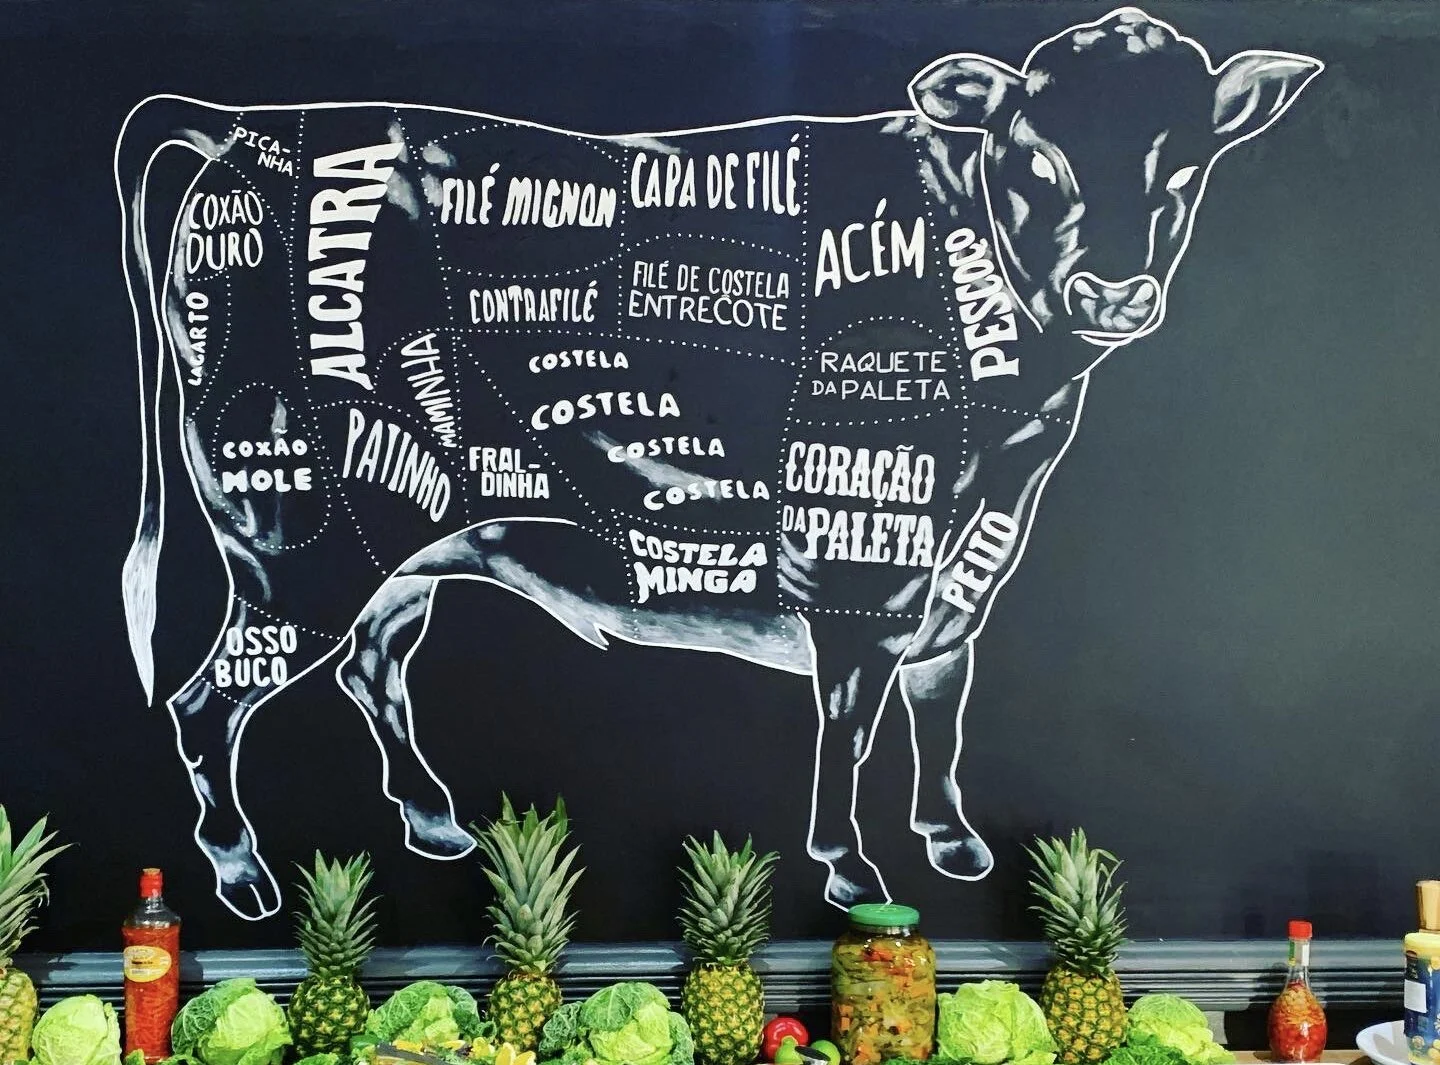 PICA-
NHA
COXÃO
DURO
LAGARTO
ALCATRA
FILÉ MIGNON
CAPA DE FILÉ
ACÉM
PESCOÇO
CONTRAFILÉ
FILÉ DE COSTELA
ENTRECÔTE
RAQUETE
DA PALETA
MAMINHA
COSTELA
COSTELA
COSTELA
COSTELA
COXÃO
MOLE
PATINHO
FRAL-
DINHA
CORAÇÃO
DA PALETA
COSTELA
MINGA
PEITO
OSSO
BUCO